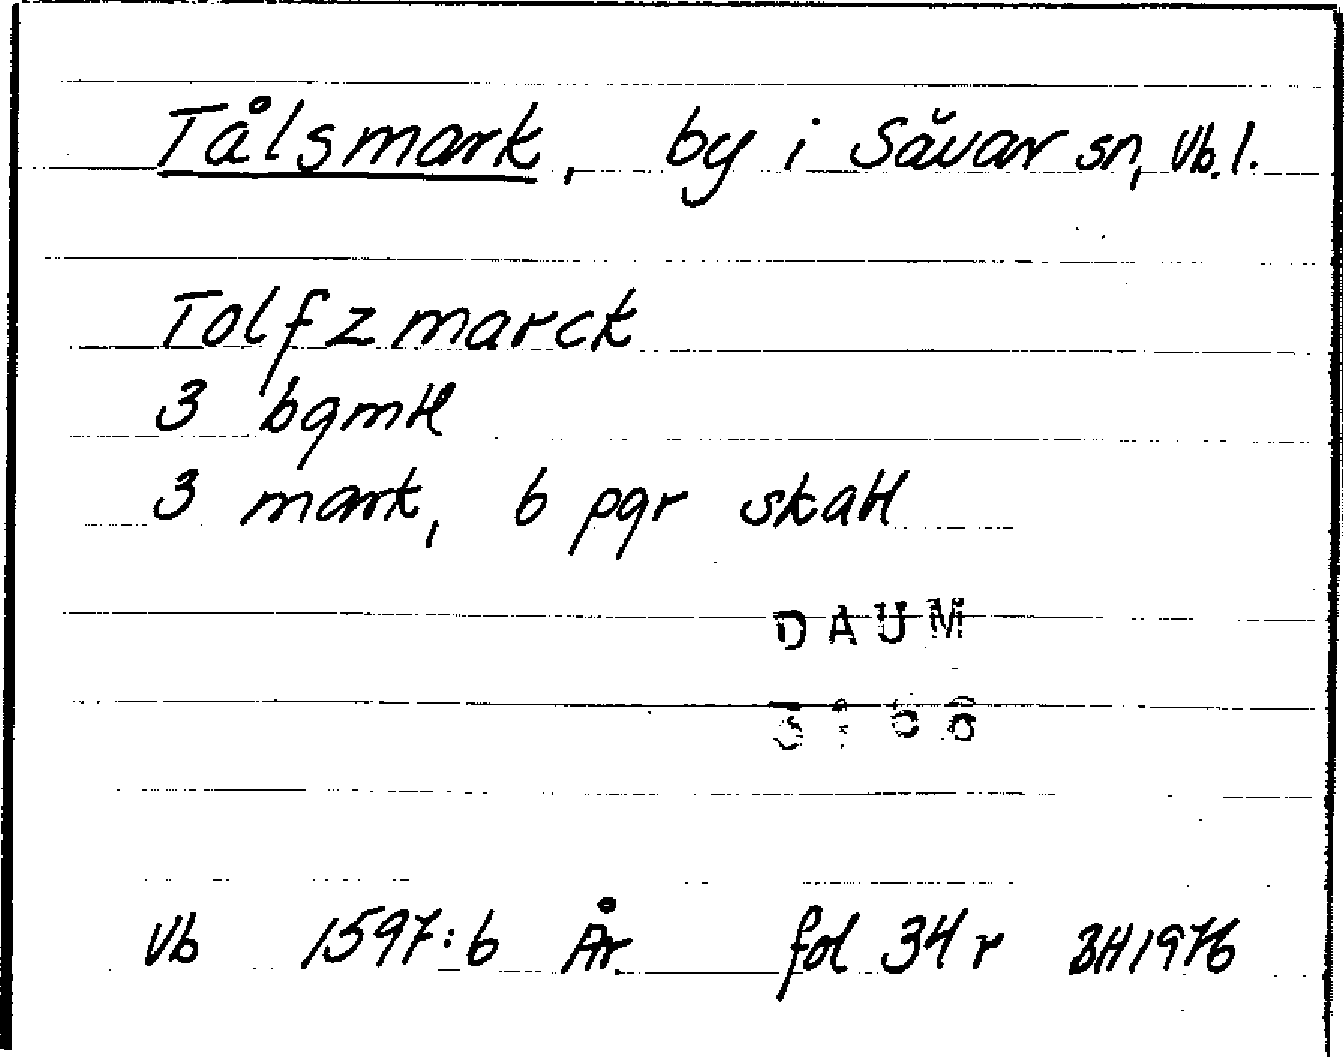 Tålsmark, by i Sävar sn, Vb. l.
Tolfzmarck
3 bgmtl
3 mark, 6 pgr skatt
DAUM
Vb 1597:6 År fol 34 r BH 1976